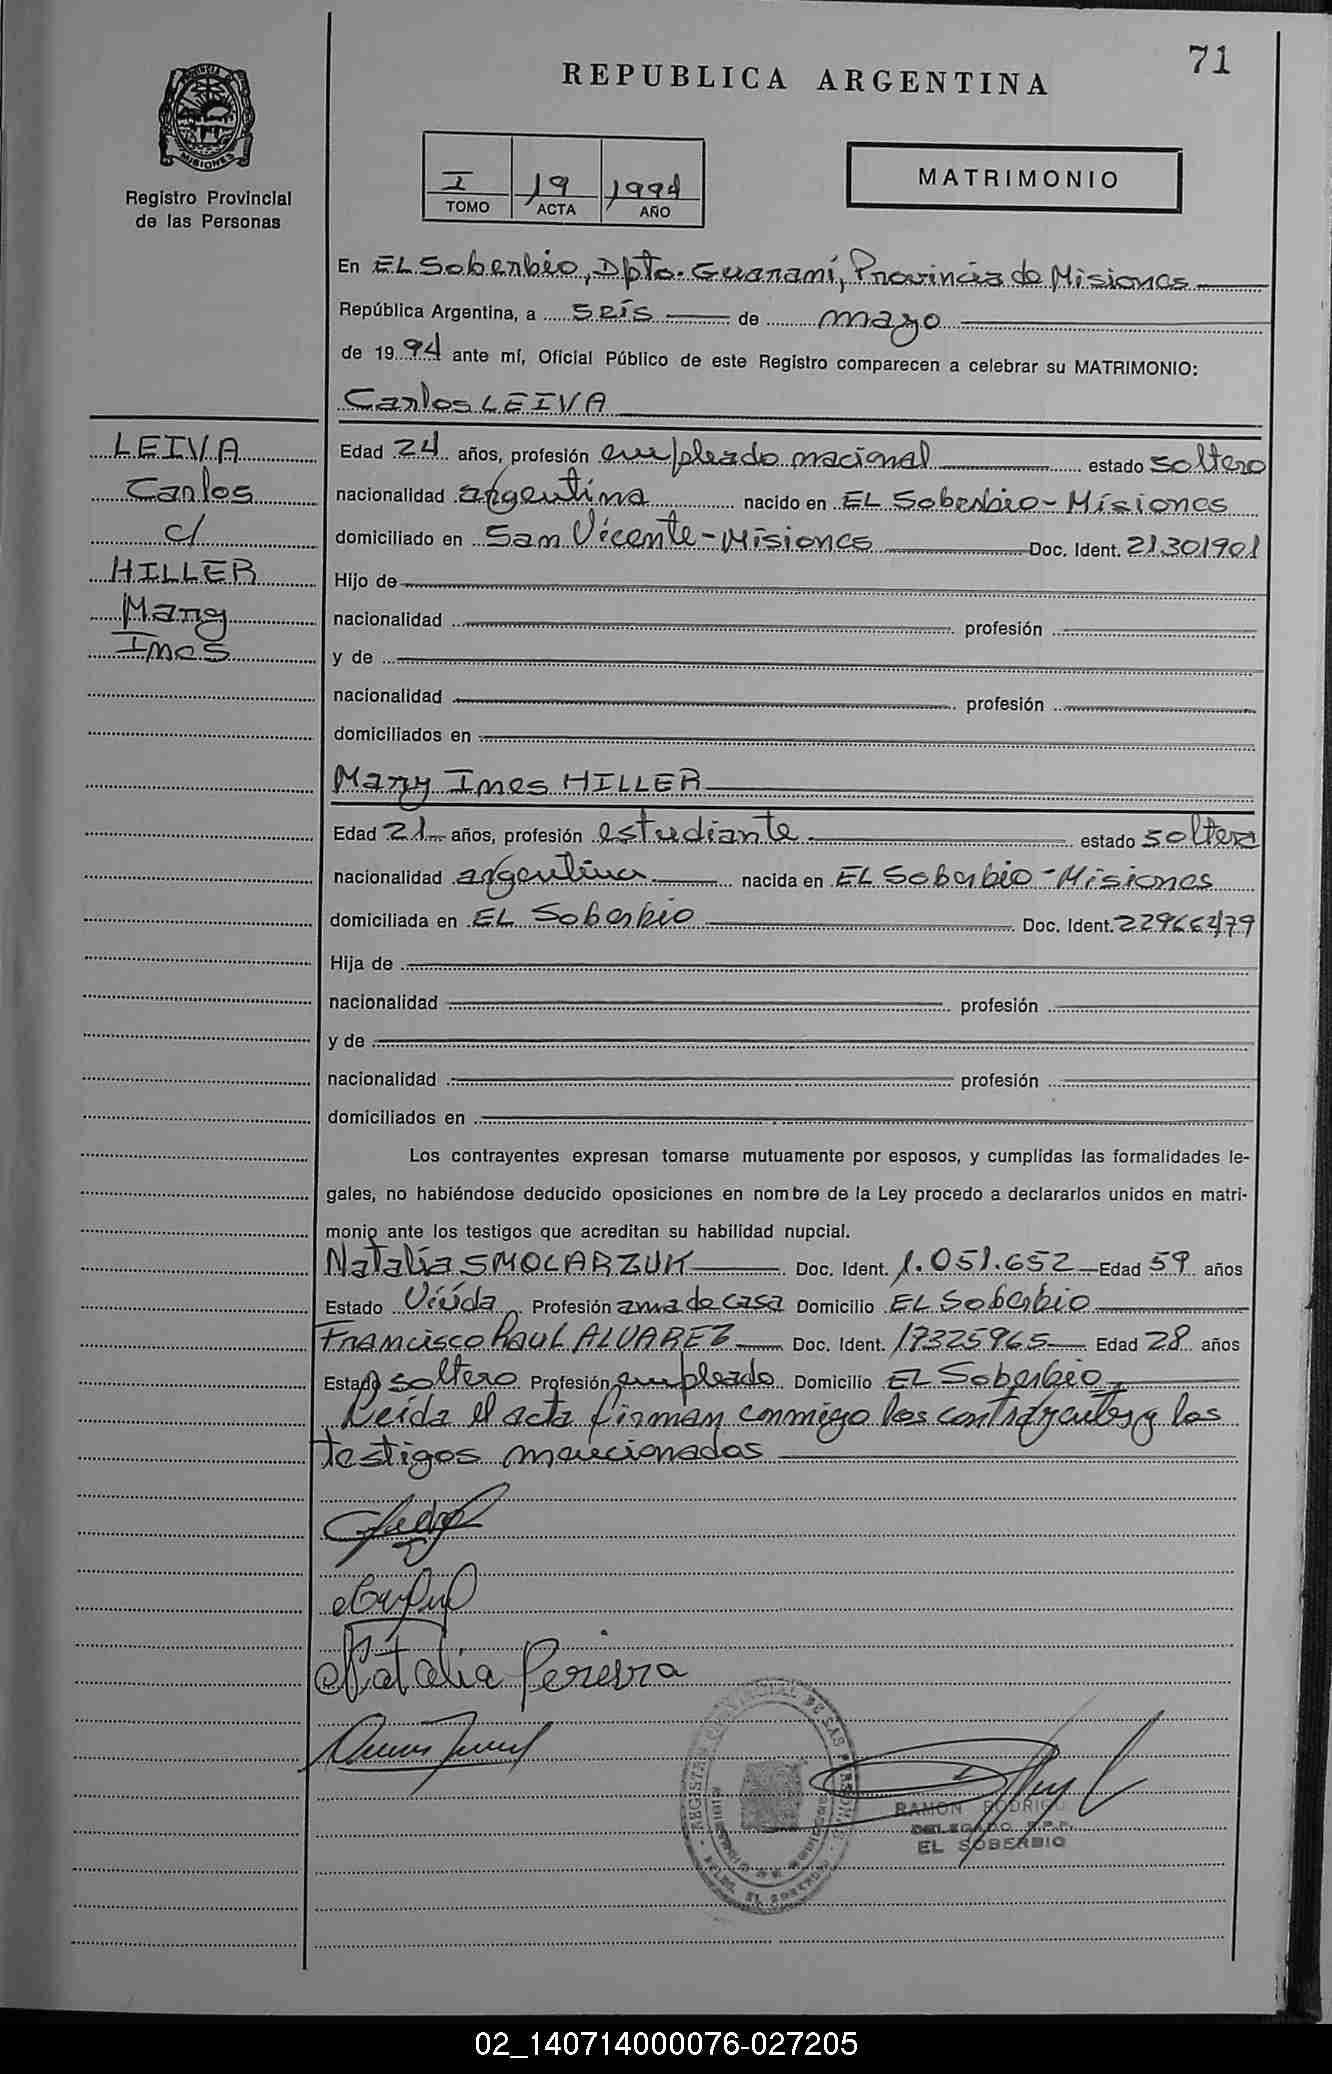 71
REPUBLICA ARGENTINA
PROVINCIA DE
MISIONES
Registro Provincial
de las Personas
I 19 1994
TOMO ACTA AÑO
MATRIMONIO
En EL Soberbio, Dpto. Guaraní, Provincia de Misiones
República Argentina, a seís de mayo
de 1994 ante mí, Oficial Público de este Registro comparecen a celebrar su MATRIMONIO:
Carlos LEIVA
LEIVA
Carlos
c/
HILLER
Mary
Ines
Edad 24 años, profesión empleado nacional estado soltero
nacionalidad argentina nacido en EL Soberbio - Misiones
domiciliado en San Vicente - Misiones Doc. Ident. 21.301901
Hijo de
nacionalidad profesión
y de
nacionalidad profesión
domiciliados en
Mary Ines HILLER
Edad 21 años, profesión estudiante estado soltera
nacionalidad argentina nacida en EL Soberbio - Misiones
domiciliada en EL Soberbio Doc. Ident.
Hija de
nacionalidad profesión
y de
nacionalidad profesión
domiciliados en
Los contrayentes expresan tomarse mutuamente por esposos, y cumplidas las formalidades le-
gales, no habiéndose deducido oposiciones en nombre de la Ley procedo a declararlos unidos en matri-
monio ante los testigos que acreditan su habilidad nupcial.
Natalia SMOLARZUK Doc. Ident. 1.051.652 Edad 59 años
Estado Viúda Profesión ama de casa Domicilio EL Soberbio
Francisco Raul ALVAREZ Doc. Ident. 17325965 Edad 28 años
Estado soltero Profesión empleado Domicilio EL Soberbio
Leída el acta firman conmigo los contrayentes y los
testigos mencionados
Natalia Pereira
REGISTRO PROVINCIAL DE LAS PERSONAS
RAMON RODRIGU
DELEGADO R.P.P.
EL SOBERBIO
02_140714000076-027205